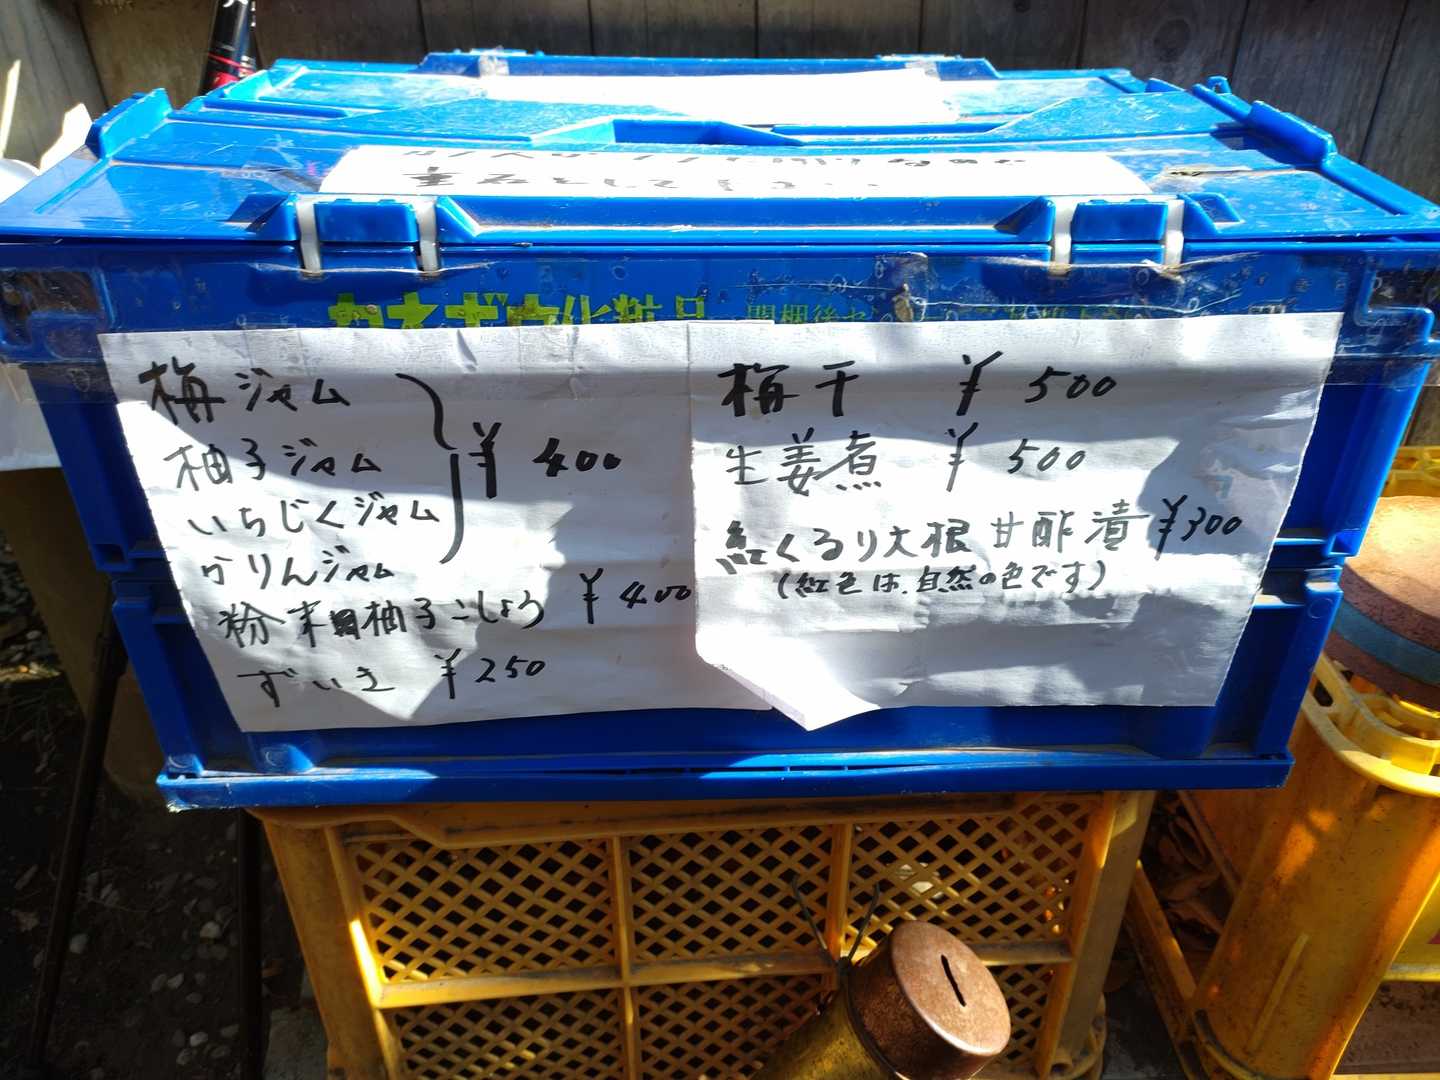 カネボウ化粧品
梅ジャム
柚子ジャム
いちじくジャム
かりんジャム
¥400
粉末柚子こしょう ¥400
ずいき ¥250
梅干 ¥500
生姜煮 ¥500
紅くるり大根甘酢漬 ¥300
(紅色は、自然の色です)